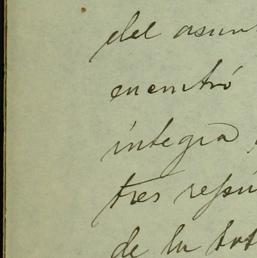 del asun
encontró
íntegra
tres repú
de la tot